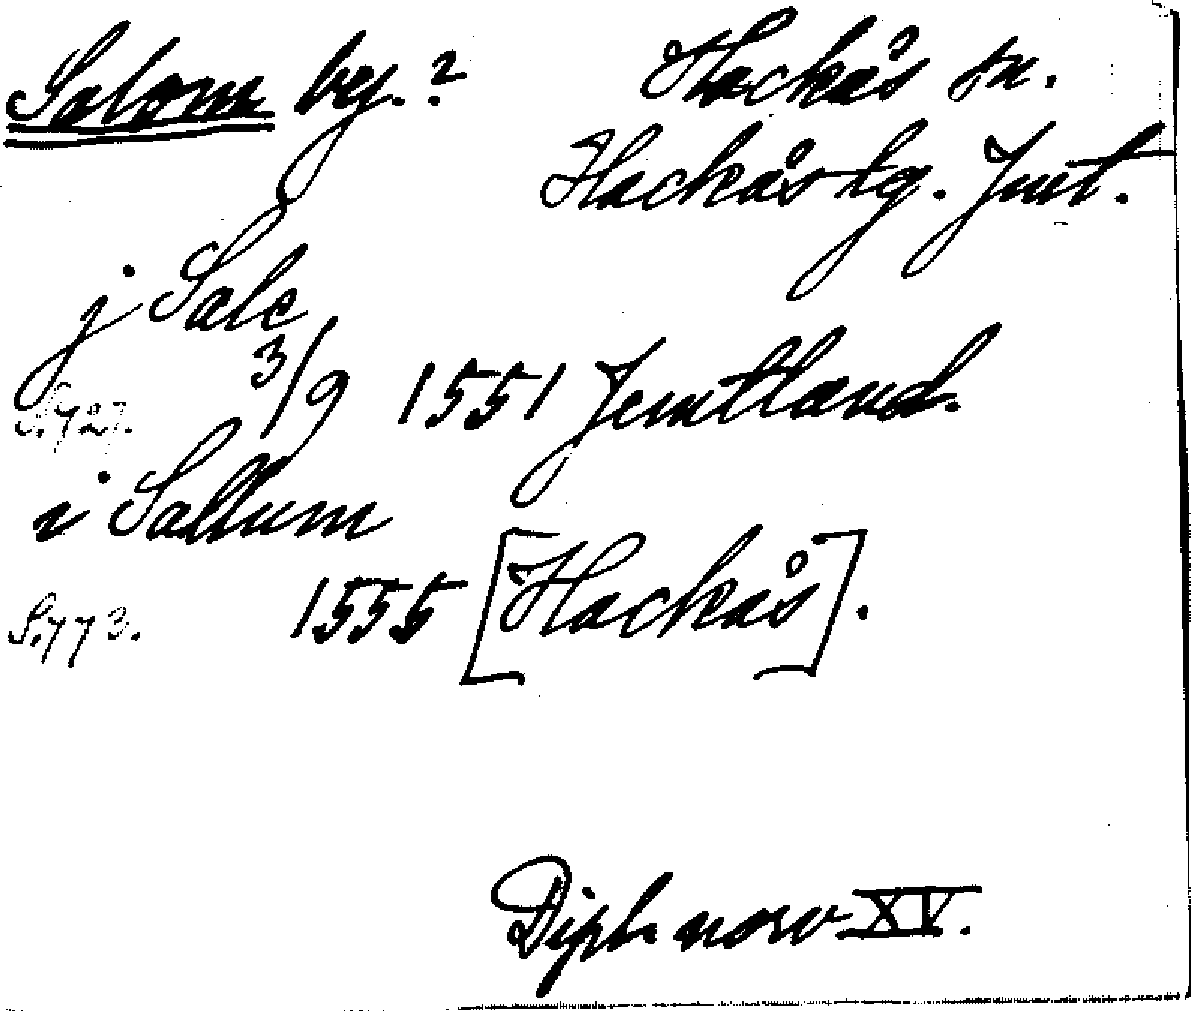 Salom by.? Hackås sn.
Hackås tg. Jmt.
j Sale
S.727. 3/9 1551 Jemtland.
i Sallum
S.773. 1555 [Hackås].
Dipl. norv XV.